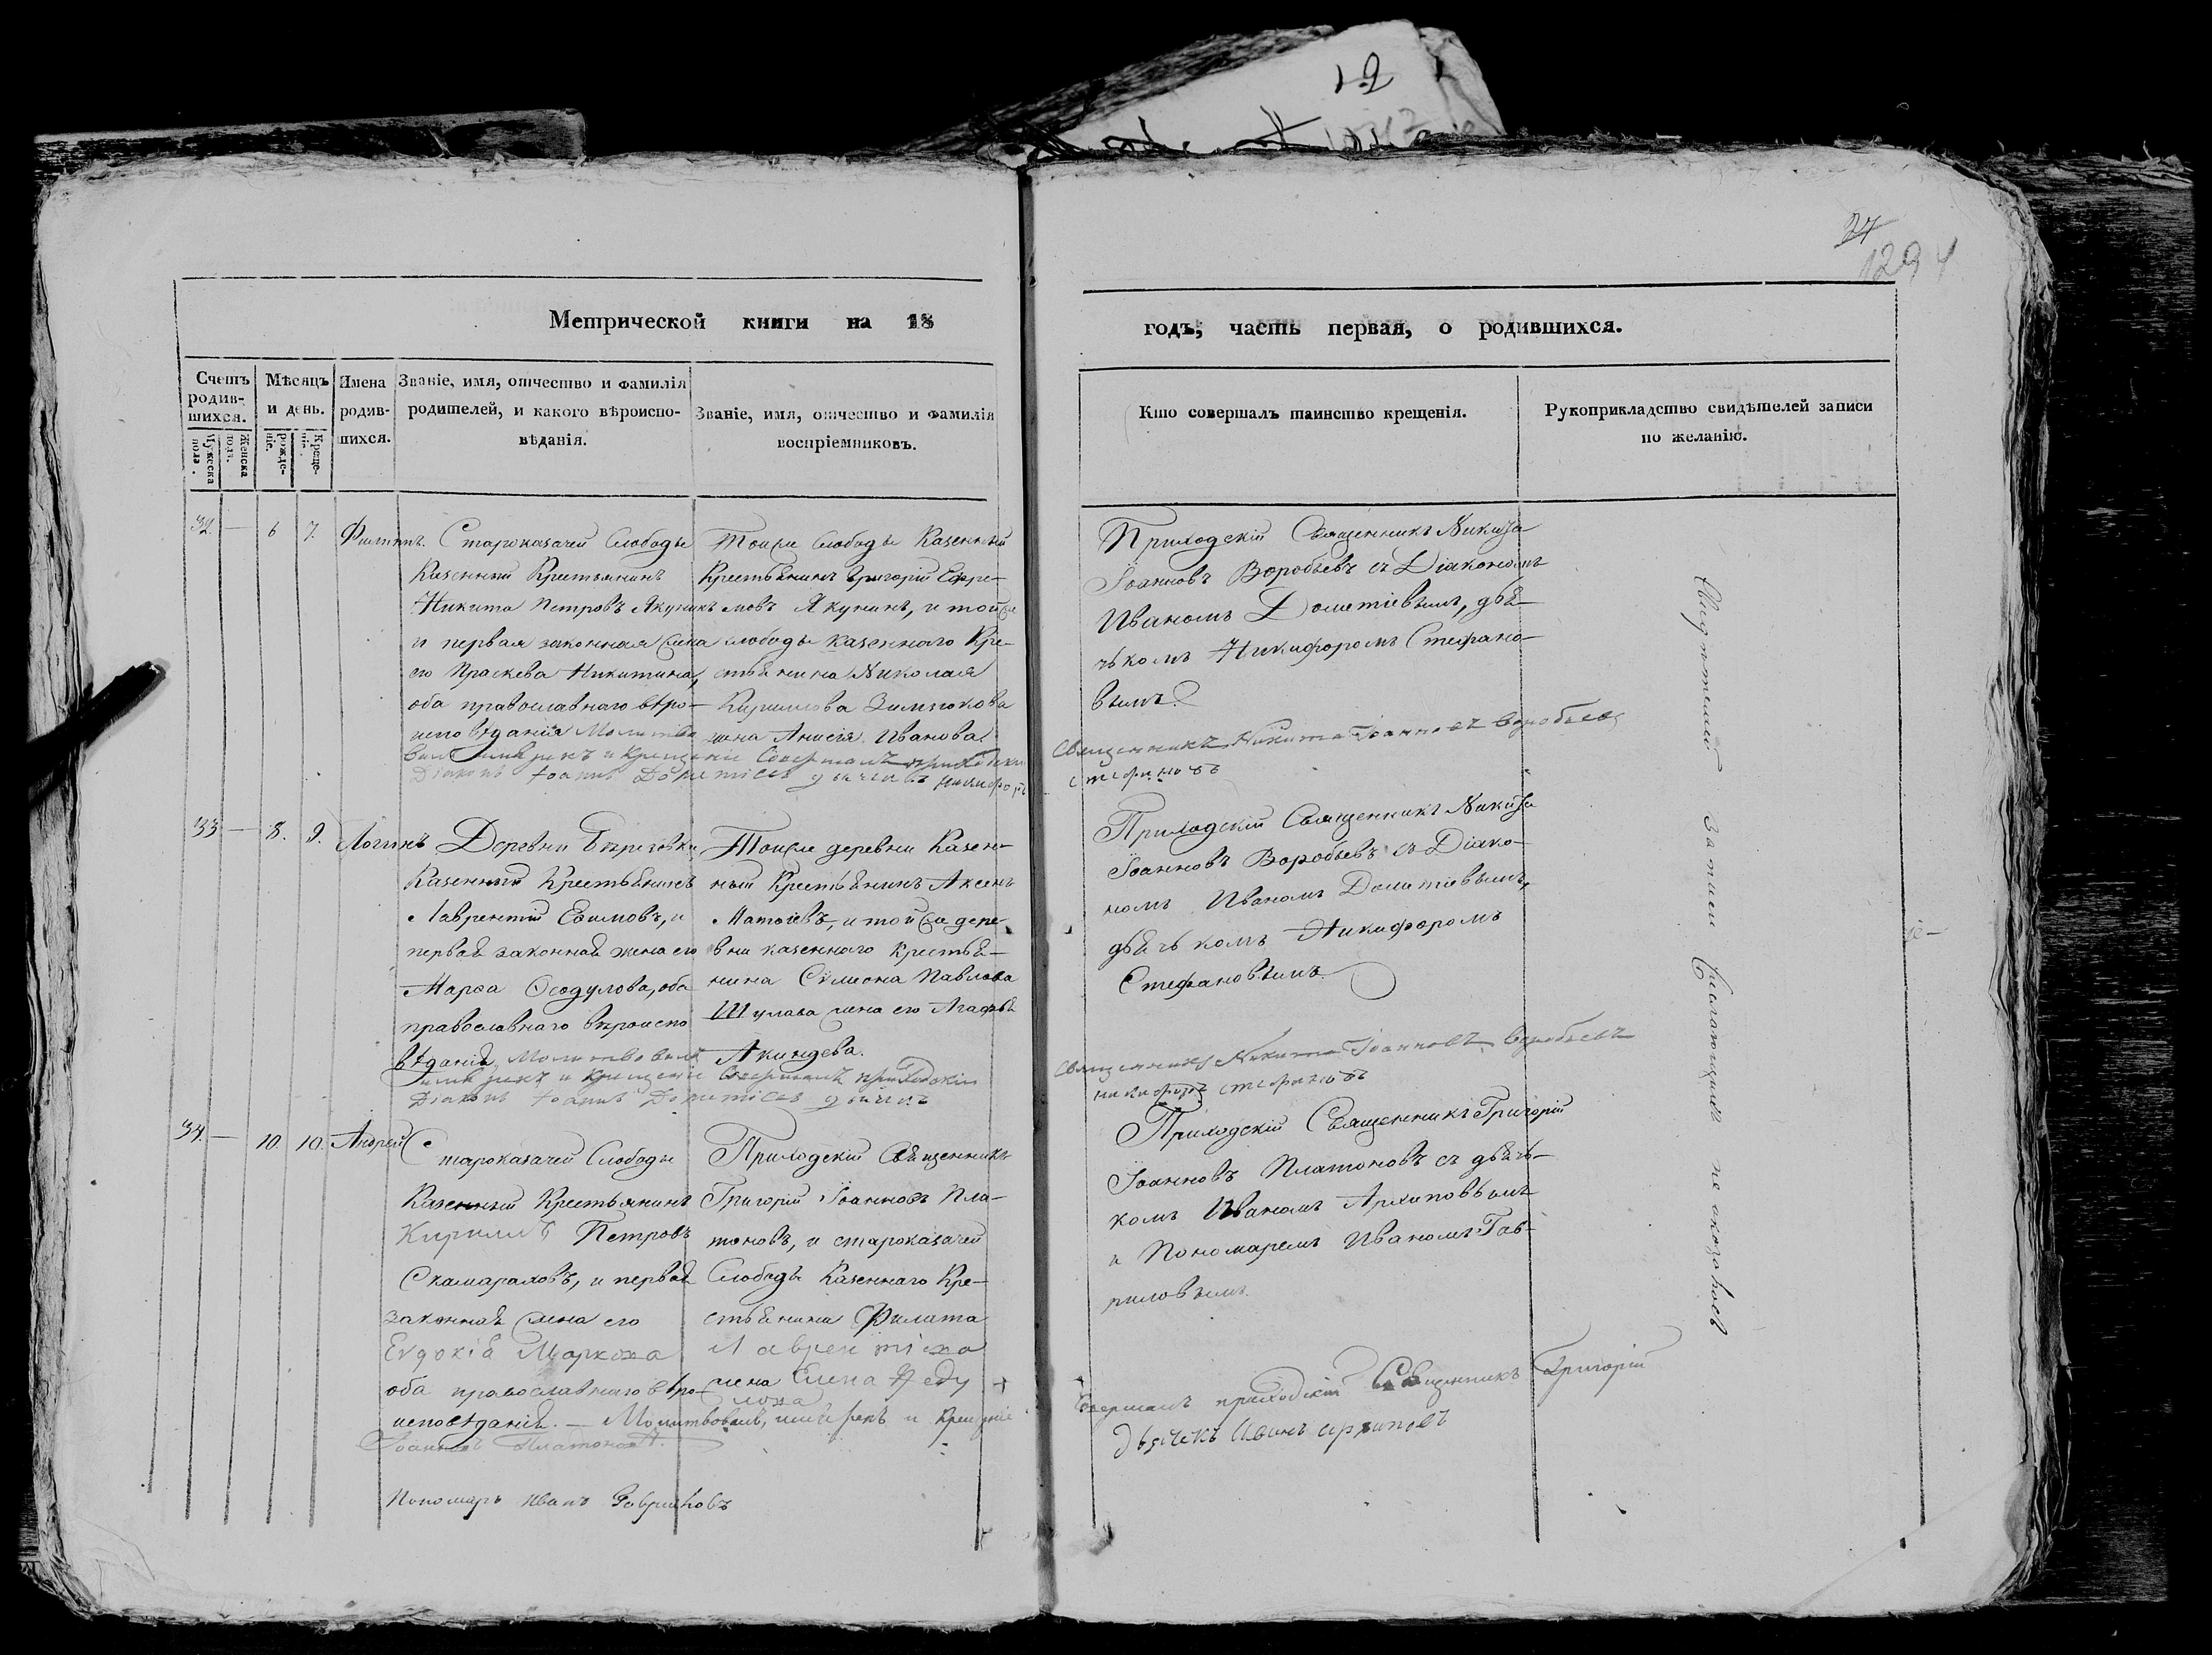 12
27
1294
Метрической книги на 18
годъ, часть первая, о родившихся.
Счетъ родив-шихся.
Мужеска пола.
Женска пола.
Мѣсяцъ и день.
Рожде-нiе.
Креще-нiе.
Имена родив-шихся.
Званiе, имя, отчество и фамилiя
родителей, и какого вѣроиспо-
вѣданiя.
Званiе, имя, отчество и фамилiя
воспрiемниковъ.
Кто совершалъ таинство крещенiя.
Рукоприкладство свидѣтелей записи
по желанiю.
32. — 6 7. Филипъ.
Староказачей Слободы
Казенный Крестьянинъ
Никита Петровъ Якунинъ
и первая законная жена
его Праскева Никитина,
оба православнаго вѣро-
исповѣданiя Молитво
валъ имя рекъ и крещенiе Совершалъ приходскiй
Дiаконъ Iоаннъ Дометiевъ дьячекъ никифоръ
Тойже Слободы Казенный
Крестьянинъ Григорiй Ефре-
мовъ Якунинъ, и тойже
слободы казеннаго Кре-
стьянина Николая
Кирилова
жена Анисiя Иванова
Приходскiй Священникъ Никита
Iоанновъ Воробьевъ съ Дiакономъ
Иваномъ Дометiевымъ, дья-
чькомъ Никифоромъ Стефано-
вымъ.
Священникъ Никита Iоанновъ Воробьевъ
стефановъ
33 — 8. 9. Логинъ.
Деревни Березовки
Казенный Крестьянинъ
Лаврентiй Ефимовъ, и
первая законная жена его
Марфа Федулова, оба
православнаго вѣроиспо
вѣданiя, Молитвовалъ
имя рекъ и крещенiе Совершалъ приходскiй
Дiаконъ Iоаннъ Дометiевъ дьячекъ
Тойже деревни Казен-
ный Крестьянинъ Аксенъ
Матвѣевъ, и тойже дере-
вни казеннаго крестья-
нина Сѵмеона Павлова
жена его Агафья
Акиндева.
Приходскiй Священникъ Никита
Iоанновъ Воробьевъ съ Дiако-
номъ Иваномъ Дометiевымъ,
дьячькомъ Никифоромъ
Стефановымъ.
Священникъ Никита Iоанновъ Воробьевъ
никифоръ стефановъ
34. — 10. 10. Андрей
Староказачей Слободы
Казенный Крестьянинъ
Кириллъ Петровъ
Скамараховъ, и первая
законная жена его
Евдокiя Маркова
оба православнаго вѣро-
исповѣданiя. — Молитвовалъ, имя рекъ и крещенiе
Iоанновъ Платоновъ.
Пономарь Иванъ Гавриловъ
Приходскiй Священникъ
Григорiй Iоанновъ Пла-
тоновъ, и староказачей
Слободы Казеннаго Кре-
стьянина Филата
Лаврентiева
жена Елена Феду
лова
Приходскiй Священникъ Григорiй
Iоанновъ Платоновъ съ дьячь-
комъ Иваномъ Архиповымъ
и Пономаремъ Иваномъ Гав-
риловымъ.
Совершалъ приходскiй Священникъ Григорiй
дьячекъ Иванъ архиповъ